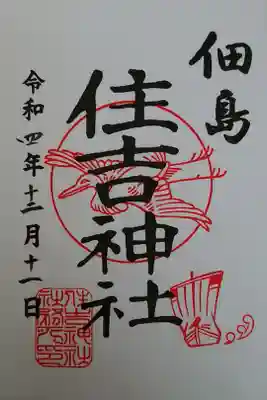 佃島
住吉神社
令和四年十二月十一日